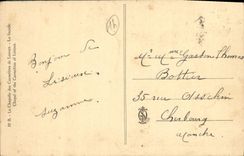 H B. - La Chapelle des Carmélites de Lisieux. - La Façade
Chapel of the Carmelites of Lisieux
Bonjour de
Lisieux
Suzanne
Mr & Mme Gaston Thomas
Bottier
35 rue Asselin
Cherbourg
Manche